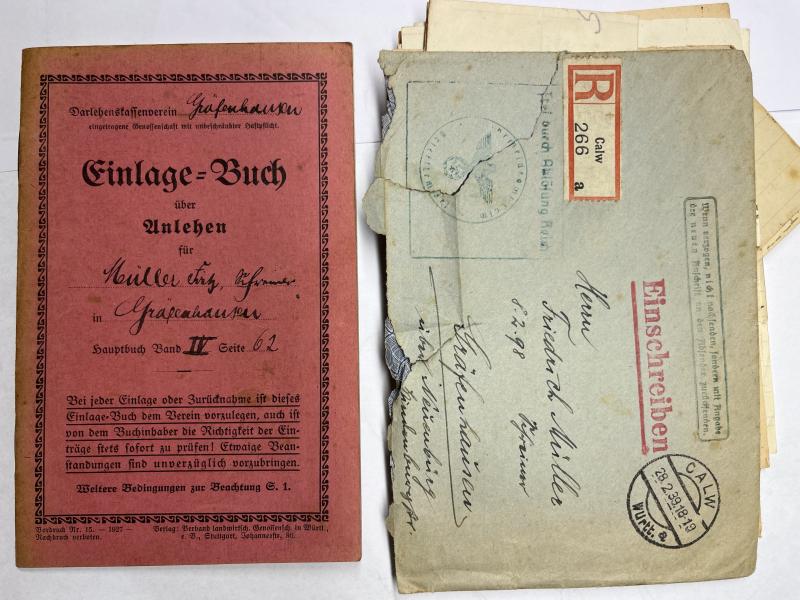 Darlehenskassenverein Gräfenhausen
eingetragene Genossenschaft mit unbeschränkter Haftpflicht.
Einlage-Buch
über
Anlehen
für
Müller Fritz, Schreiner
in Gräfenhausen
Hauptbuch Band IV Seite 62
Bei jeder Einlage oder Zurücknahme ist dieses
Einlage-Buch dem Verein vorzulegen, auch ist
von dem Buchinhaber die Richtigkeit der Ein-
träge stets sofort zu prüfen! Etwaige Bean-
standungen sind unverzüglich vorzubringen.
Weitere Bedingungen zur Beachtung S. 1.
Vordruck Nr. 15. — 1927 —
Nachdruck verboten.
Verlag: Verband landwirtsch. Genossensch. in Württ.,
e. V., Stuttgart, Johannesstr. 86.
5
Frei durch Ablösung Reich
R
Calw
266 a
Wenn verzogen, nicht nachsenden, sondern mit Angabe
der neuen Anschrift an den Absender zurücksenden.
Einschreiben
Herrn
Friedrich Müller
8.2.98
Schreiner
Gräfenhausen
über Neuenbürg
Hindenburgstr.
CALW
28.2.39.18-19
Württ. a